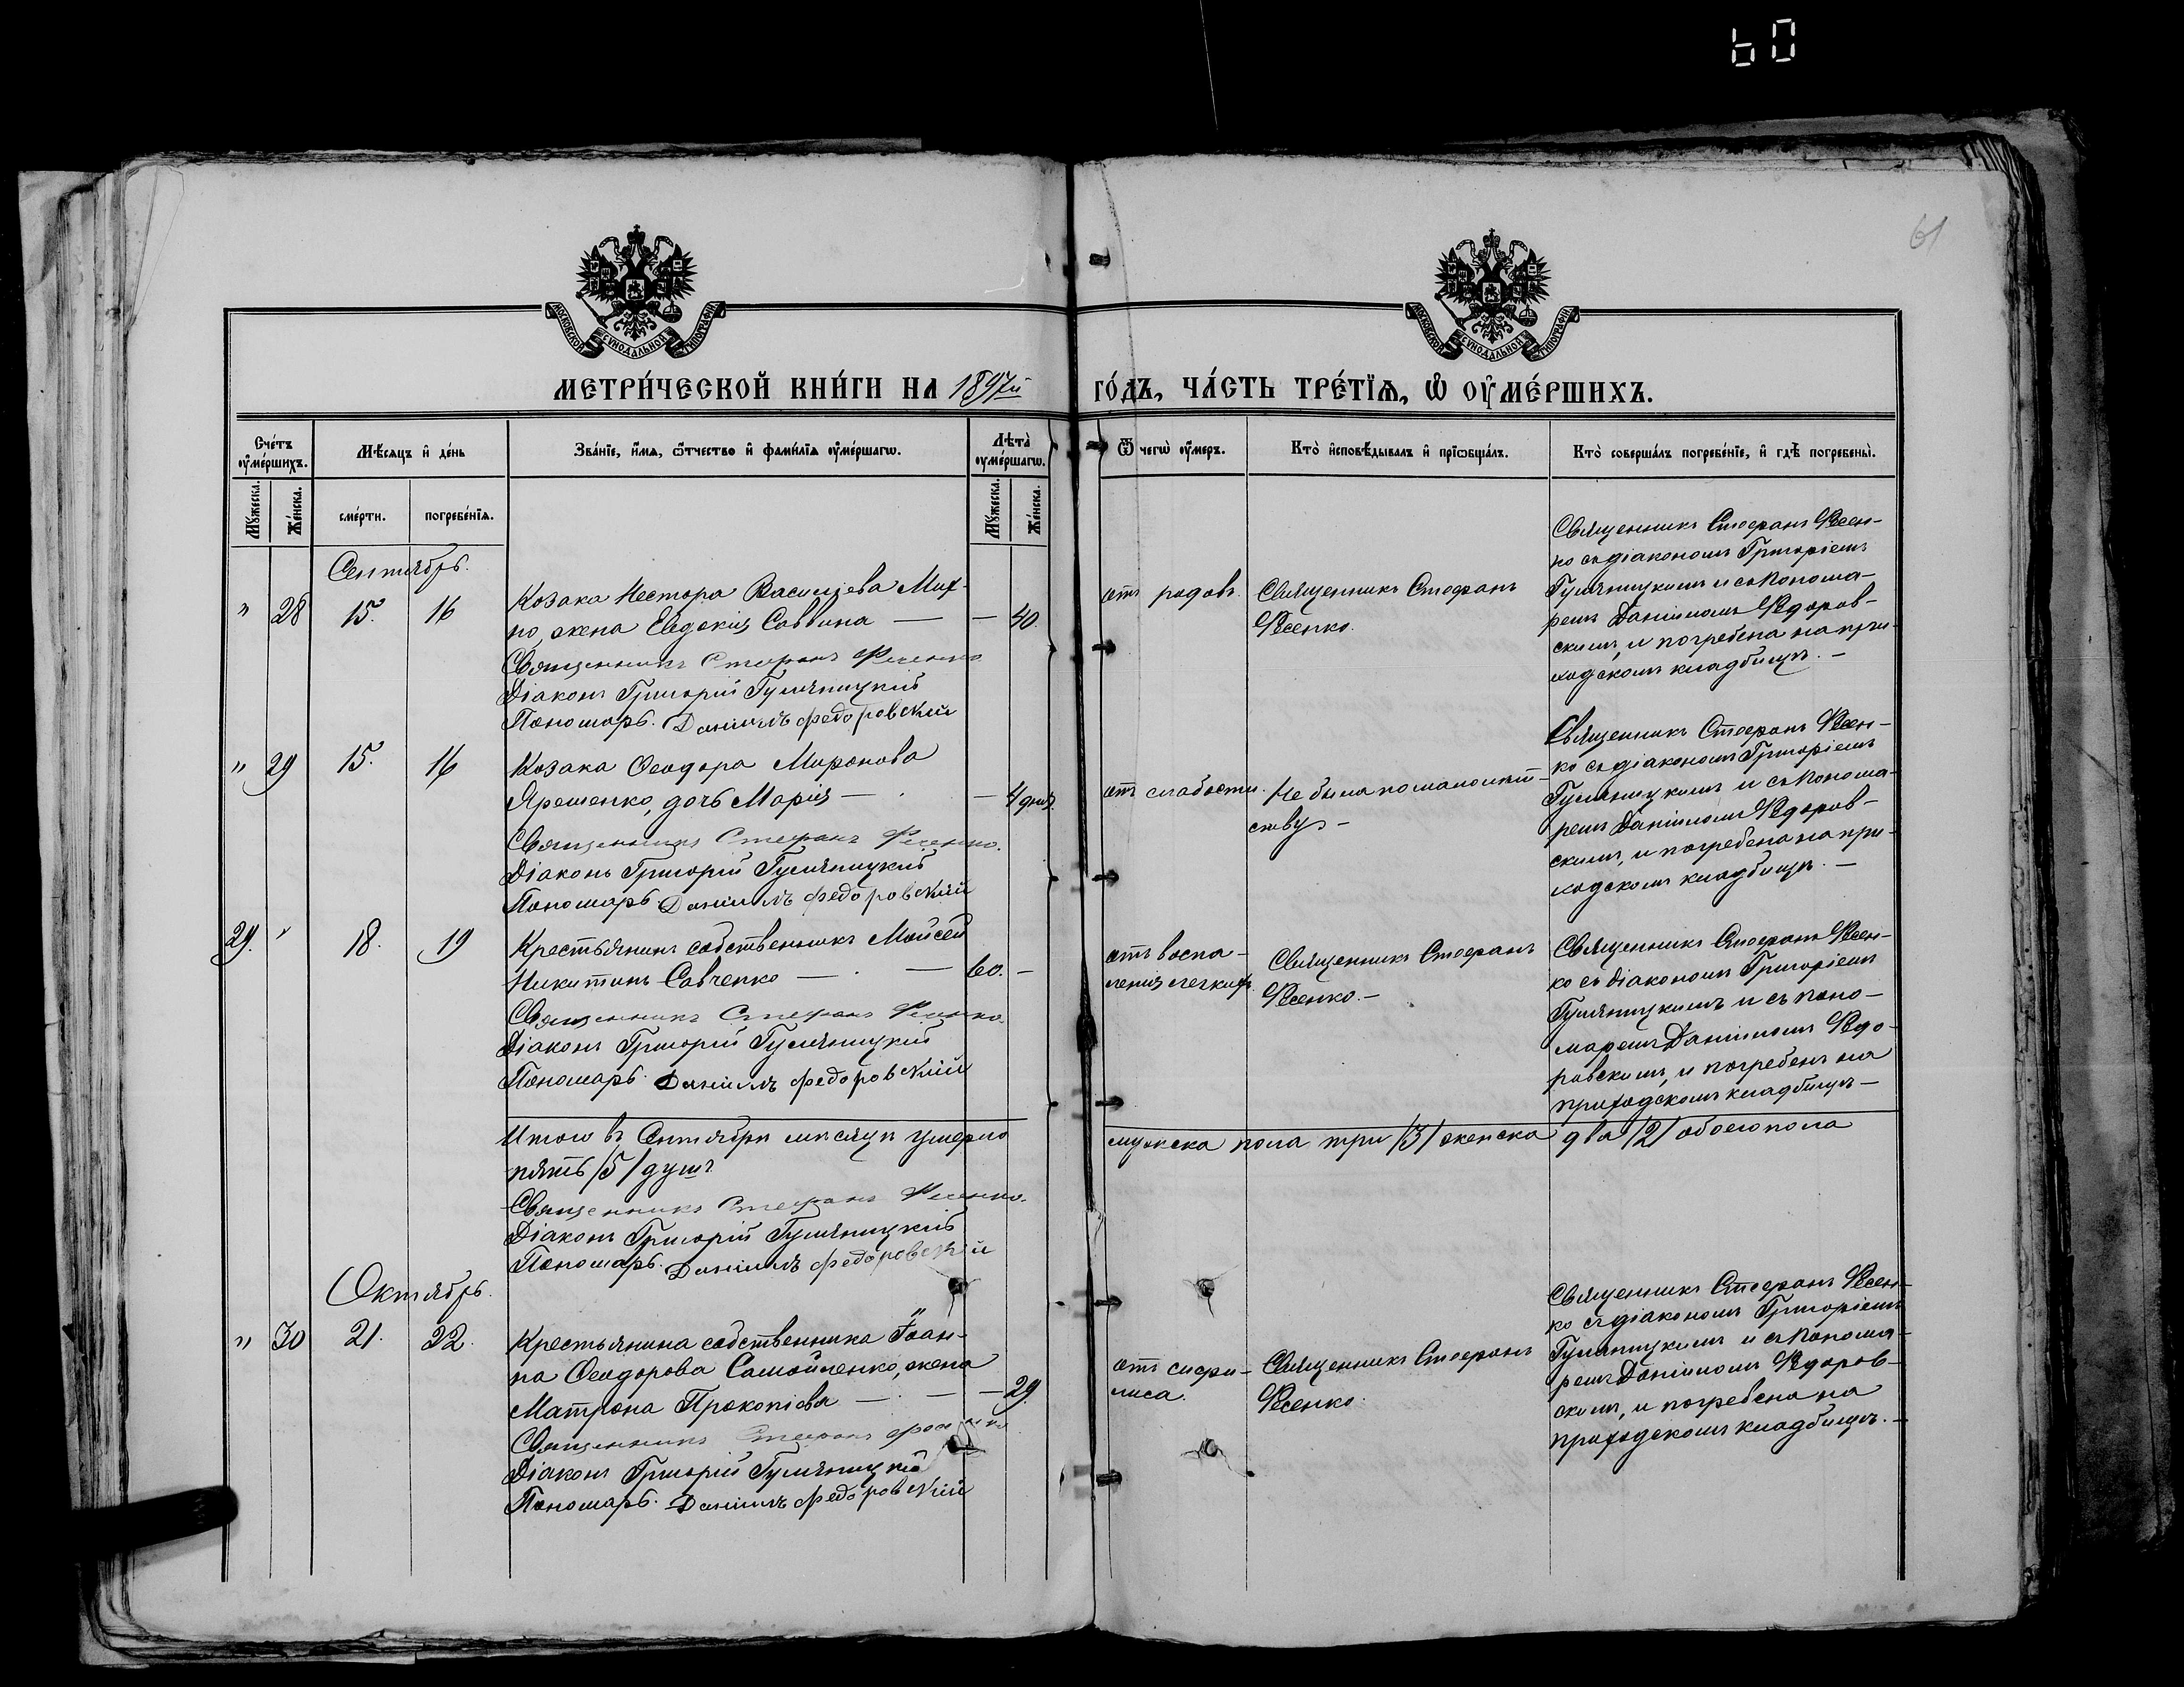 60
61
МОСКОВСКОЙ СѴНОДАЛЬНОЙ ТИПОГРАФІИ
МОСКОВСКОЙ СѴНОДАЛЬНОЙ ТИПОГРАФІИ
МЕТРИ́ЧЕСКОЙ КНИ́ГИ НА 1897й ГО́ДЪ, ЧА́СТЬ ТРЕ́ТЇѦ, Ѡ҆ ОУ҆МЕ́РШИХЪ.
Сче́тъ оу҆ме́ршихъ.
Мѣ́сяцъ и҆ де́нь
Зва́нїе, и҆́мя, ѻ҆́тчество и҆ фами́лїя оу҆ме́ршагѡ.
Лѣ́та оу҆ме́ршагѡ.
Ѿ чегѡ̀ оу҆́меръ.
Кто̀ и҆сповѣ́дывалъ и҆ прїѡбща́лъ.
Кто̀ соверша́лъ погребе́нїе, и҆ гдѣ̀ погребены̀.
Мꙋ́жеска.
Же́нска.
сме́рти.
погребе́нїя.
Мꙋ́жеска.
Же́нска.
Сентябрь.
" 28 15. 16
Козака Нестора Василіева Мих-
но, жена Евдокія Саввина — — 40.
Священникъ Стефанъ Фесенко
Діаконъ Григорій Гумяницкій
Пономарь. Даніилъ Федоровскій
отъ родовъ.
Священникъ Стефанъ
Фесенко.
Священникъ Стефанъ Фесен-
ко съ діакономъ Григоріемъ
Гумяницкимъ и съ понома-
ремъ Даніиломъ Федоров-
скимъ, и погребена на при-
ходскомъ кладбищѣ. —
" 29 15. 16
Козака Ѳеодора Миронова
Ярешенко, дочь Марія — . — 4 дня.
Священникъ Стефанъ Фесенко.
Діаконъ Григорій Гумяницкій
Пономарь. Даніилъ Федоровскій
отъ слабости.
Не была по малолѣт-
ству. —
Священникъ Стефанъ Фесен-
ко съ діакономъ Григоріемъ
Гумяницкимъ и съ понома-
ремъ Даніиломъ Федоров-
скимъ, и погребена на при-
ходскомъ кладбищѣ. —
29. " 18. 19
Крестьянинъ собственникъ Мойсей
Никитинъ Савченко — . — 60. —
Священникъ Стефанъ Фесенко.
Діаконъ Григорій Гумяницкій
Пономарь. Даніилъ Федоровскій
отъ воспа-
ленія легкихъ
Священникъ Стефанъ
Фесенко. —
Священникъ Стефанъ Фесен-
ко съ діакономъ Григоріемъ
Гумяницкимъ и съ поно-
маремъ Даніиломъ Федо-
ровскимъ, и погребенъ на
приходскомъ кладбищѣ —
Итого въ Сентябрѣ мѣсяцѣ умерло мужска пола три /3/ женска два /2/ обоего пола
пять /5/ душъ
Священникъ Стефанъ Фесенко.
Діаконъ Григорій Гумяницкій
Пономарь. Даніилъ Федоровскій
Октябрь.
" 30 21. 22.
Крестьянина собственника Іоан-
на Ѳеодорова Самойленко, жена
Матрона Прокопіова — . — — 29.
Священникъ Стефанъ Фесенко
Діаконъ Григорій Гумяницкій
Пономарь. Даніилъ Федоровскій
отъ сифи-
лиса.
Священникъ Стефанъ
Фесенко.
Священникъ Стефанъ Фесен-
ко съ діакономъ Григоріемъ
Гумяницкимъ и съ понома-
ремъ Даніиломъ Федоров-
скимъ, и погребена на
приходскомъ кладбищѣ. —